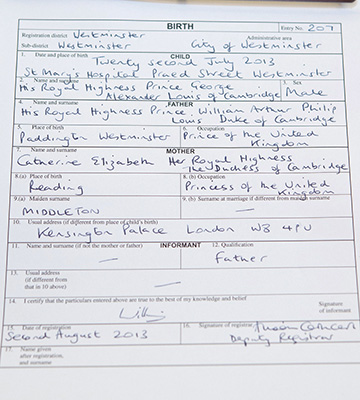 BIRTH
Entry No. 207
Registration district Westminster
Administrative area
Sub-district Westminster
City of Westminster
1. Date and place of birth
CHILD
Twenty second July 2013
St Mary's Hospital Praed Street Westminster
2. Name and surname
3. Sex
His Royal Highness Prince George
Alexander Louis of Cambridge
Male
4. Name and surname
FATHER
His Royal Highness Prince William Arthur Philip
Louis Duke of Cambridge
5. Place of birth
6. Occupation
Paddington Westminster
Prince of the United
Kingdom
7. Name and surname
MOTHER
Catherine Elizabeth Her Royal Highness
The Duchess of Cambridge
8.(a) Place of birth
8. (b) Occupation
Reading
Princess of the United
Kingdom
9.(a) Maiden surname
9. (b) Surname at marriage if different from maiden surname
MIDDLETON
—
10. Usual address (if different from place of child's birth)
Kensington Palace London W8 4PU
11. Name and surname (if not the mother or father)
INFORMANT
12. Qualification
—
Father
13. Usual address
(if different from
that in 10 above)
—
14. I certify that the particulars entered above are true to the best of my knowledge and belief
Signature
of informant
15. Date of registration
16. Signature of registrar
Second August 2013
Deputy Registrar
17. Name given
after registration,
and surname
—